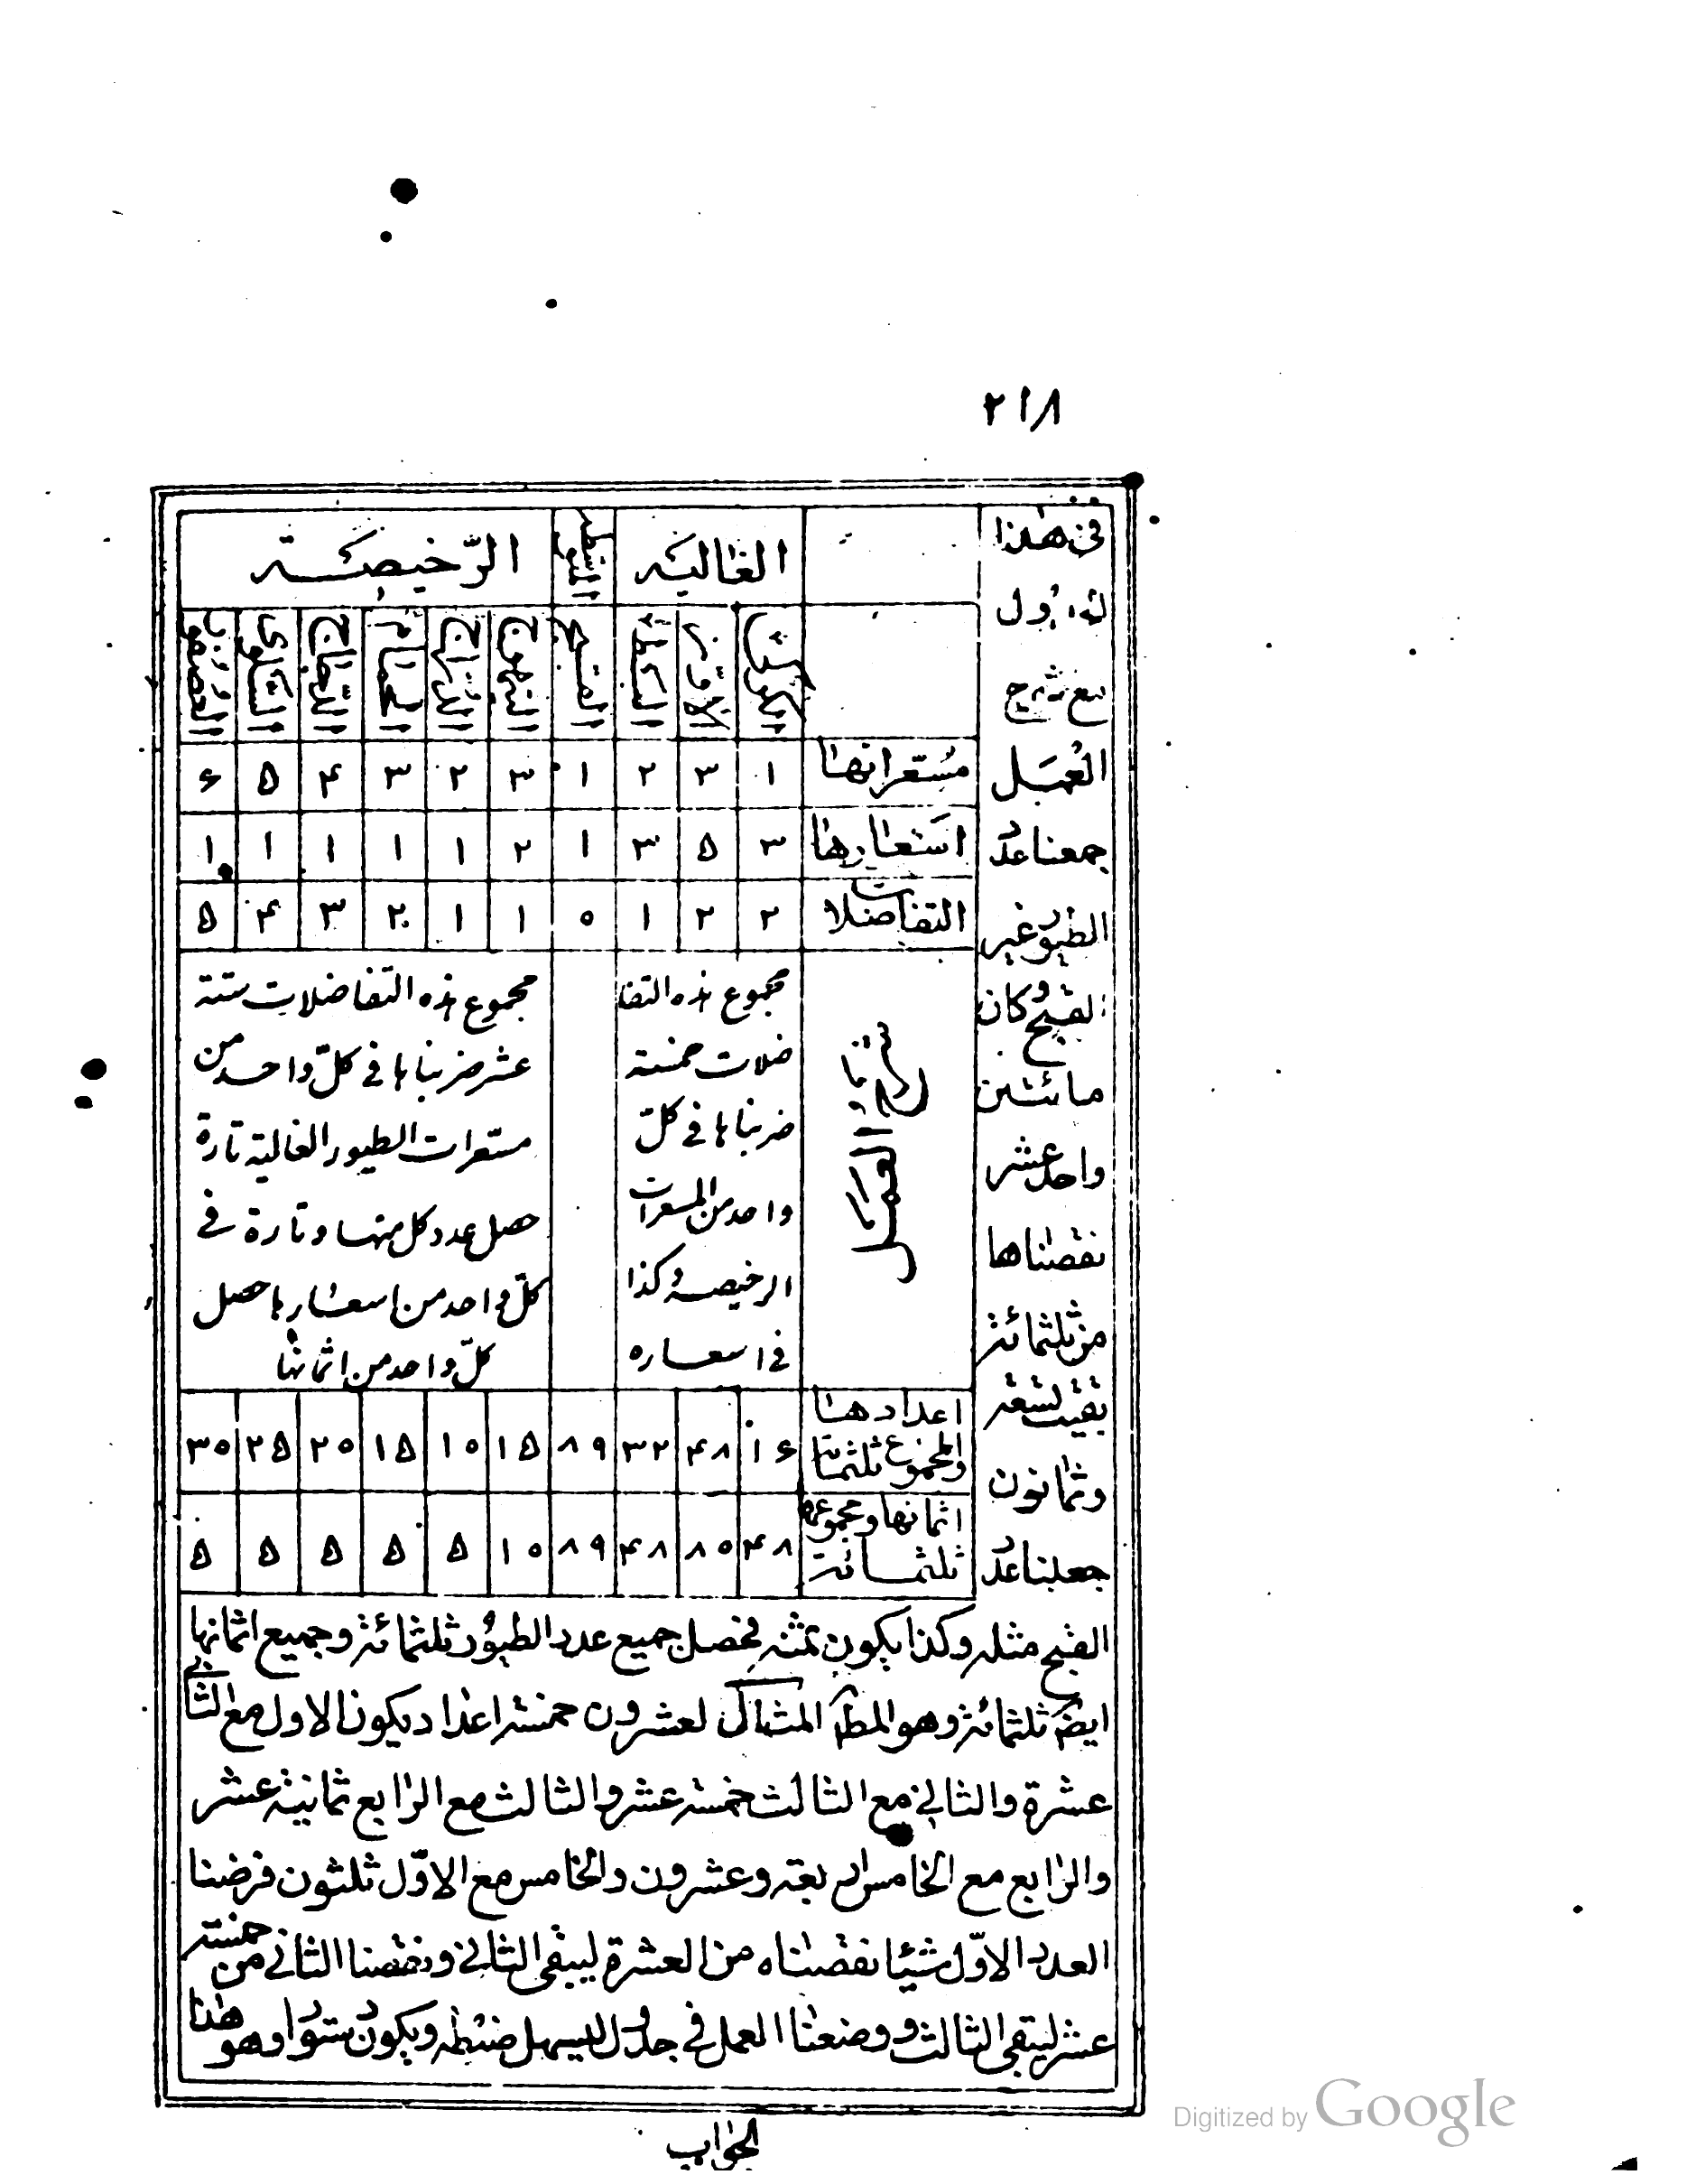 ٢١٨
فى هذا
العمل
جمعنا عدد
الطيور غير
القبج وكان
مائتين
واحد عشر
نقصناها
من ثلثمائة
بقيت تسعة
وثمانون
جعلنا عدد
الغالية الرّخيصة
القبج الدجاج
مسعراتها ١ ٣ ٢ ١ ٣ ٢ ٣ ۴ ۵ ۶
اسعارها ٣ ۵ ٣ ١ ٢ ١ ١ ١ ١ ١
التفاضلات ٢ ٢ ١ ٠ ١ ١ ٢ ٣ ۴ ۵
العمل
مجموع هذه التفا
ضلات خمسة
ضربناها فى كلّ
واحد من المسعرات
الرخيصة وكذا
فى اسعاره
مجموع هذه التفاضلات ستة
عشر ضربناها فى كلّ واحد من
مسعرات الطيور الغالية تارة
حصل عدد كل منها وتارة فى
كلّ واحد من اسعارها حصل
كلّ واحد من اثمانها
اعدادها
والمجموع ثلثمائة
١۶ ۴٨ ٣٢ ٨٩ ١۵ ١٠ ١۵ ٢٠ ٢۵ ٣٠
اثمانها ومجموعها
ثلثمائة
۴٨ ٨٠ ۴٨ ٨٩ ١٠ ۵ ۵ ۵ ۵ ۵
القبج مثله وكذا يكون ثمنه فحصل جميع عدد الطيور ثلثمائة وجميع اثمانها
ايضً ثلثمائة وهو المطَ المثال لعشرون خمسة اعداد يكون الاول مع الثانى
عشرة والثانى مع الثالث خمسة عشر والثالث مع الرابع ثمانية عشر
والرابع مع الخامس اربعة وعشرون والخامس مع الاوّل ثلثون فرضنا
العدد الاوّل شيئا نقصناه من العشرة ليبقى الثانى ونقصنا الثانى من خمسة
عشر ليبقى الثالث ووضعنا العمل فى جدول ليسهل ضبطه ويكون وهو هذا
الجواب
Digitized by Google